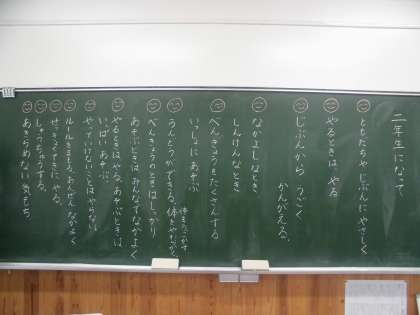 二年生になって
ともだちや じぶんにやさしく
やるときは、やる
じぶんから うごく
かんがえる。
なかよしなとき
しんけんなとき
べんきょうをたくさんする
いっしょにあそぶ
うんどうができる。体をやわらかく
体をうごかす
べんきょうのときはしっかり
あそぶときはみんなでなかよく
やるときはやる。あそぶときは
いっぱいあそぶ。
やっていけないことはやらない
ルールをまもる。なかよく
せっきょくてきに やる。
しゅうちゅうする。
あきらめない気もち